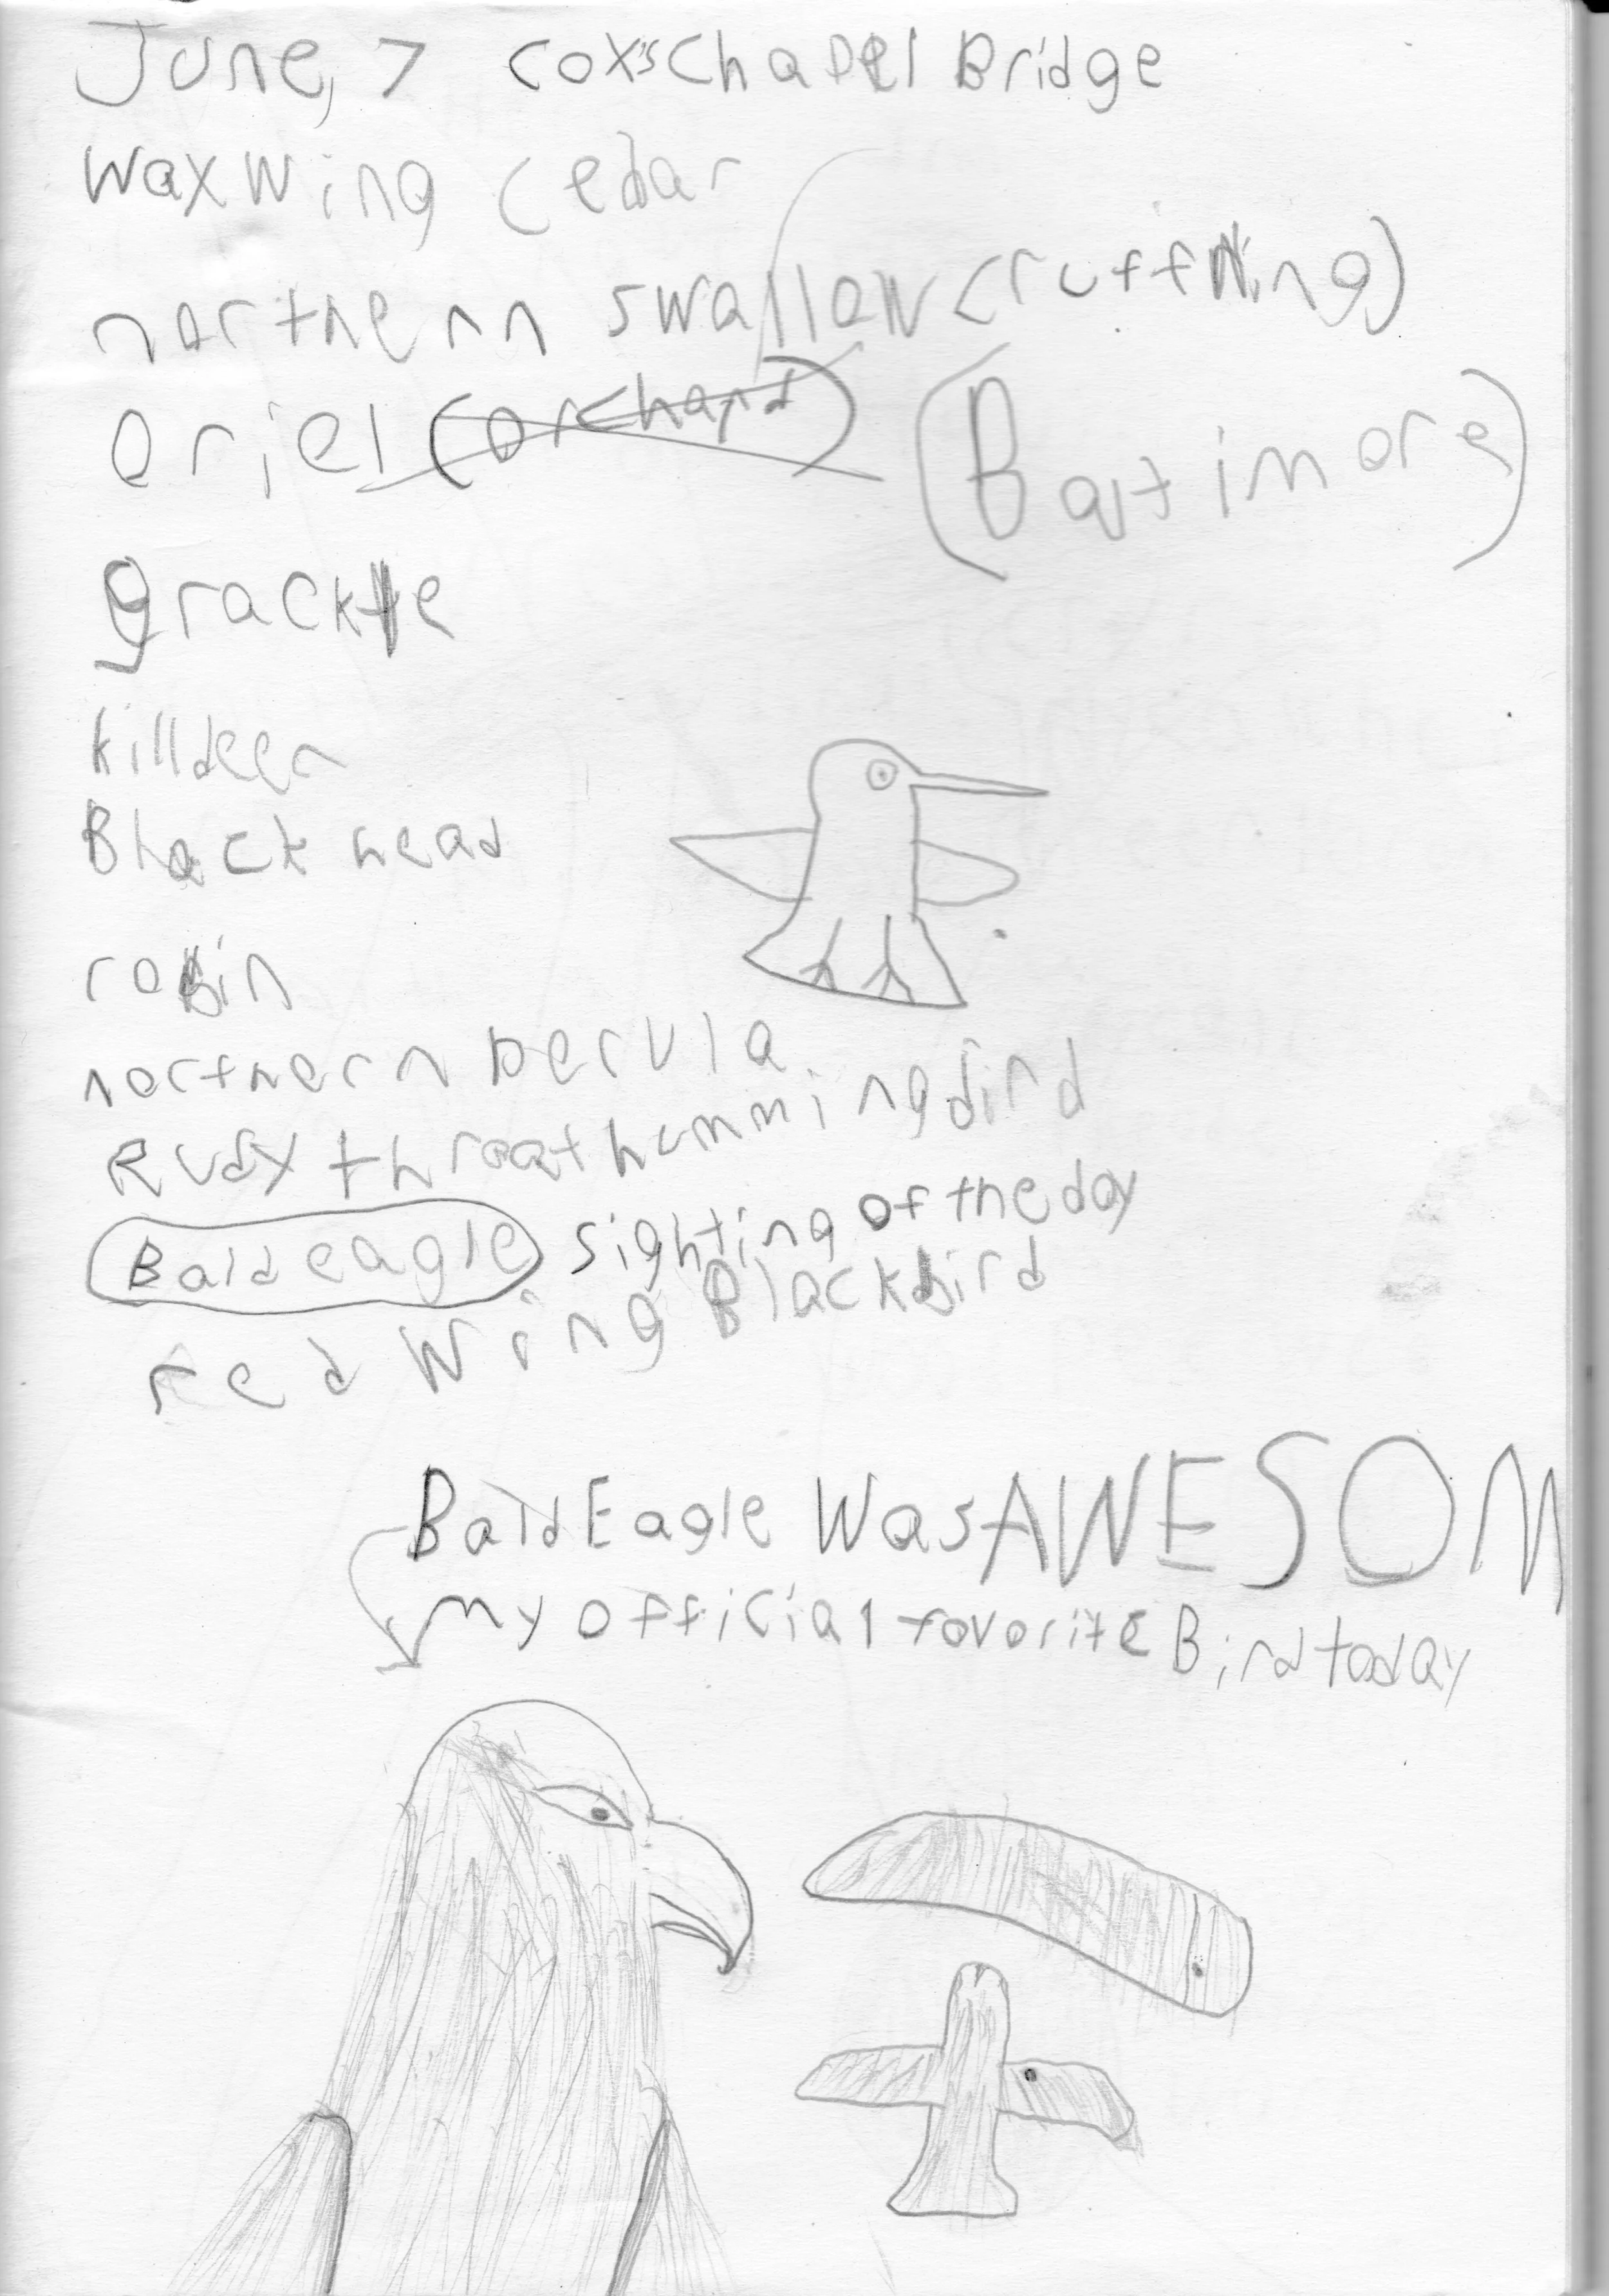 June, 7 cox's chapel Bridge
waxwing cedar
northern swallow (ruff wing)
oriel (orchard) (Baltimore)
grackle
killdeer
Black head
robin
northern perula
Ruby throat hummingbird
Bald eagle sighting of the day
red wing Blackbird
Bald Eagle Was AWESOM
my official favorite Bird today